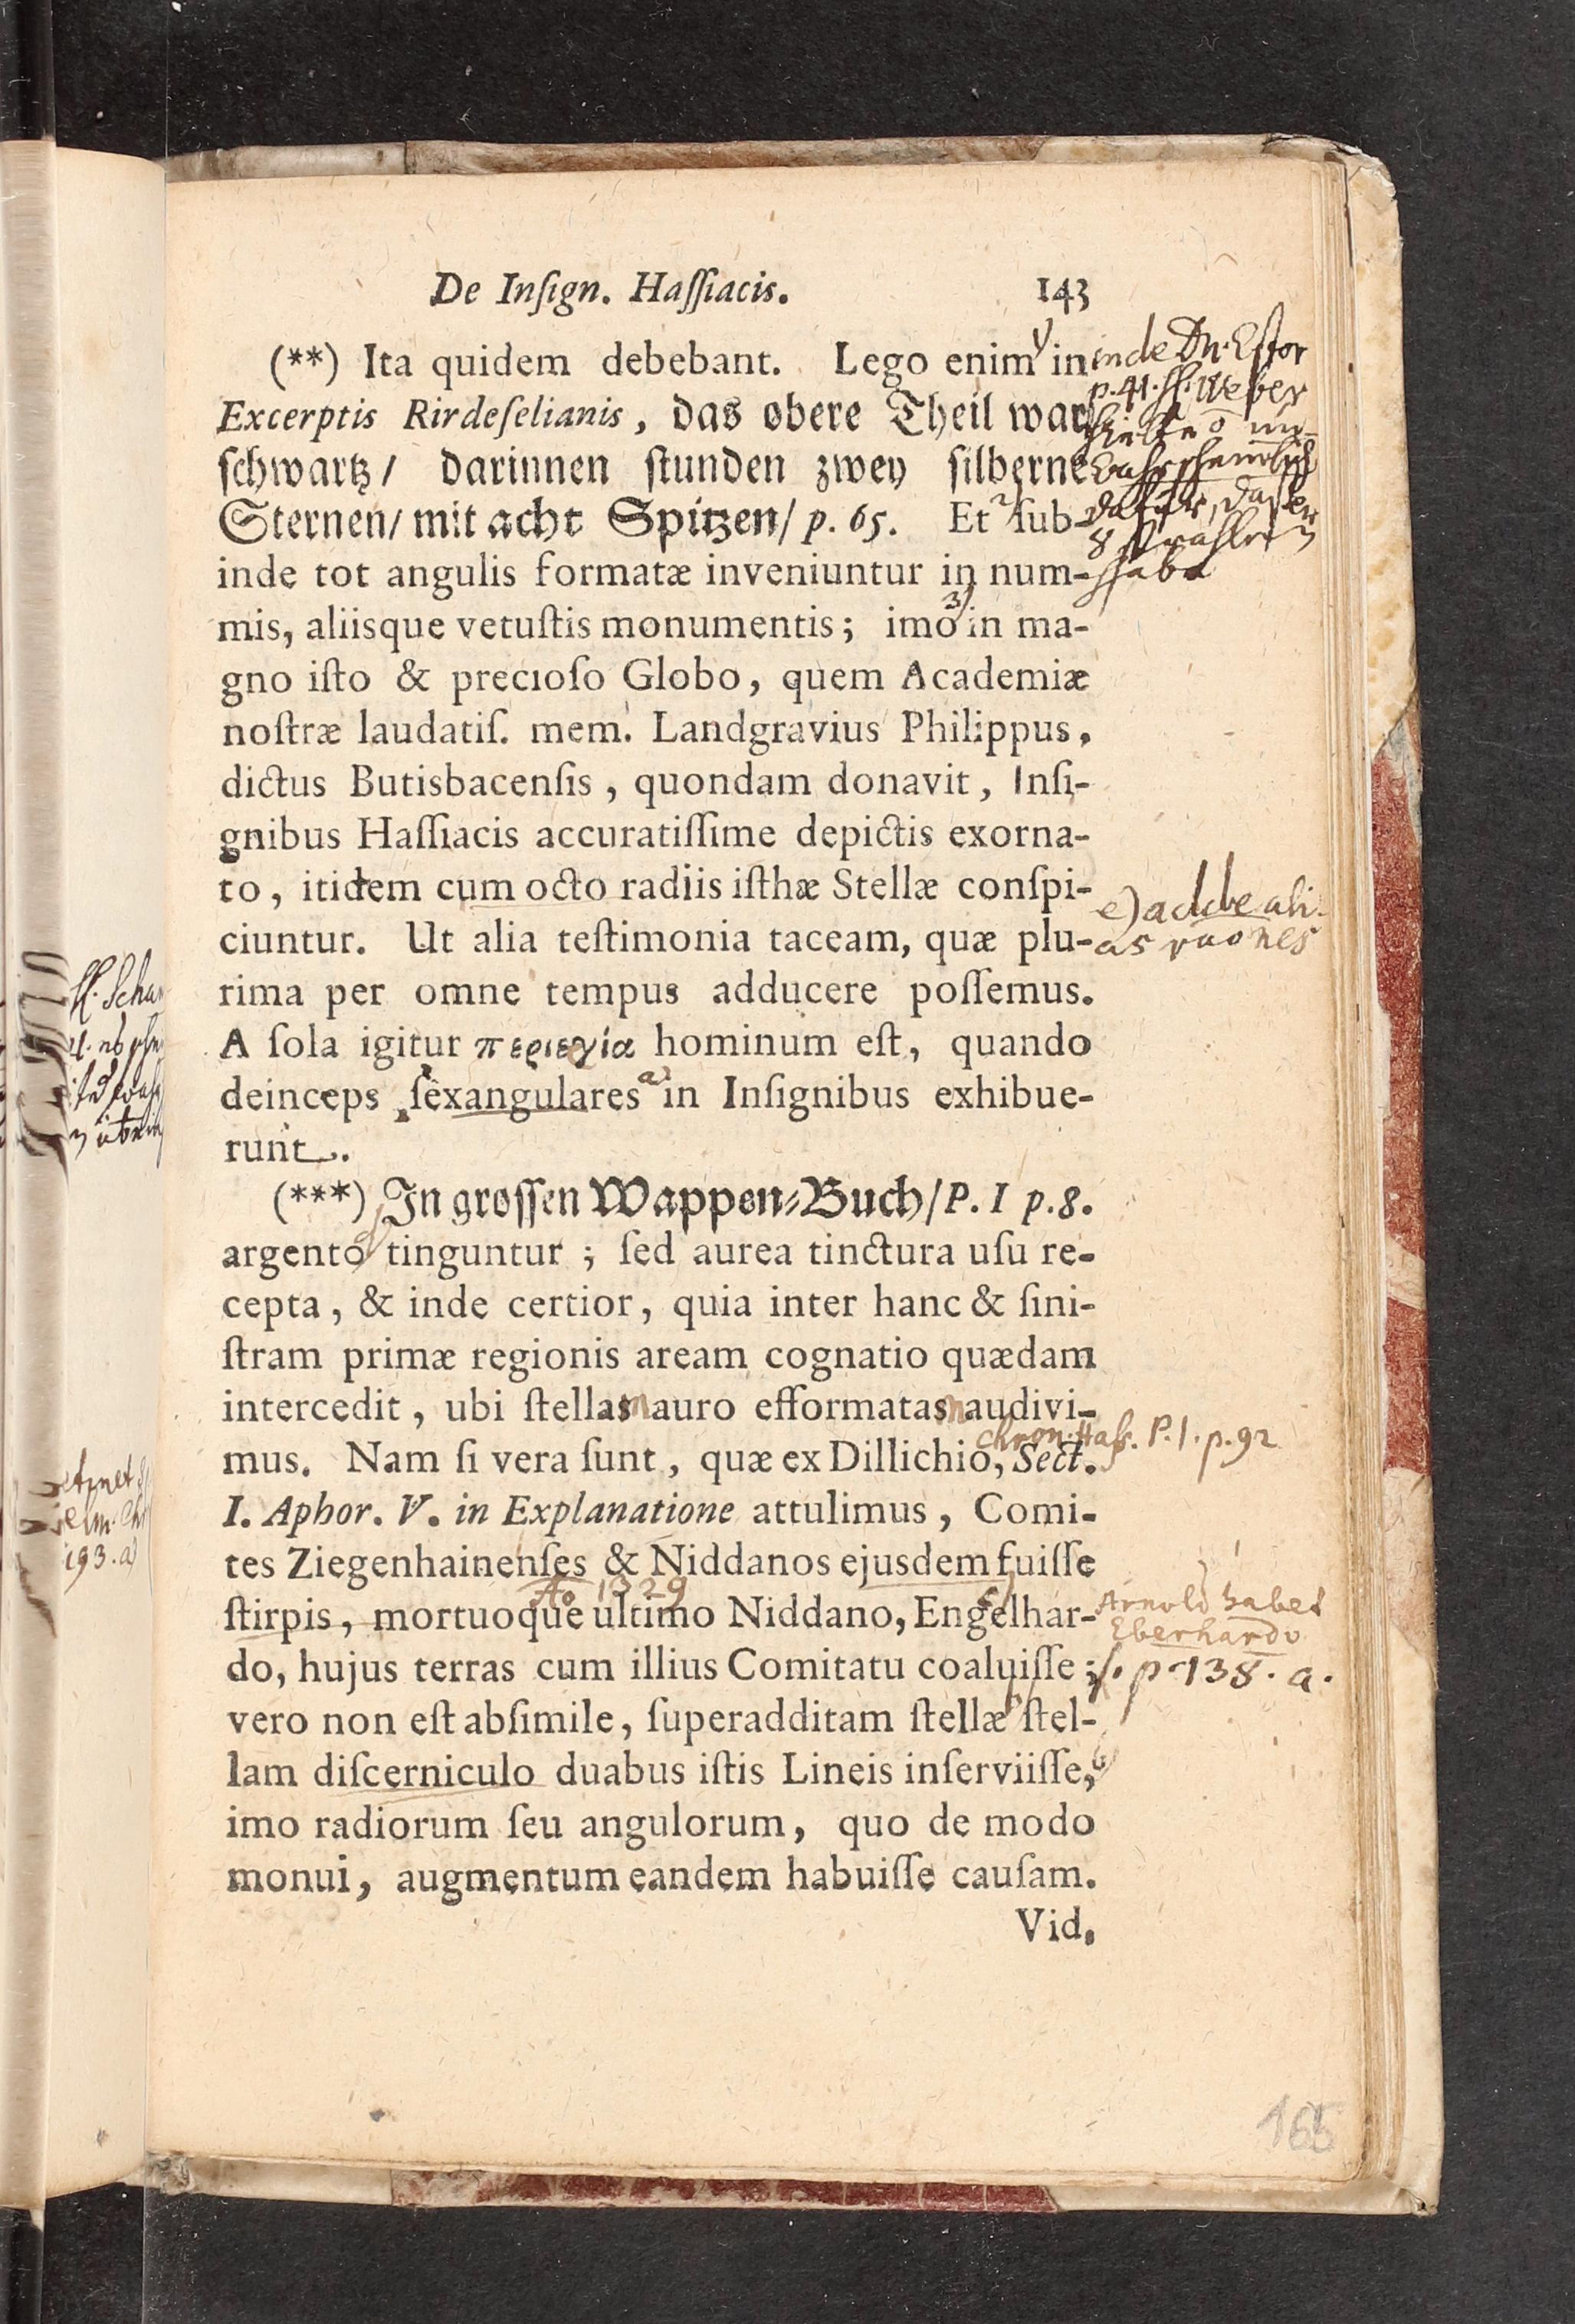 De Inſign. Haſſiacis. 143
(**) Ita quidem debebant. Lego enim in
Excerptis Rirdeſelianis, das obere Theil war
ſchwartz/ darinnen ſtunden zwey ſilberne
Sternen/ mit acht Spitzen/ p. 65. Et ſub-
inde tot angulis formatæ inveniuntur in num-
mis, aliisque vetuſtis monumentis; imo in ma-
gno iſto & precioſo Globo, quem Academiæ
noſtræ laudatiſ. mem. Landgravius Philippus,
dictus Butisbacenſis, quondam donavit, Inſi-
gnibus Haſſiacis accuratiſſime depictis exorna-
to, itidem cum octo radiis iſthæ Stellæ conſpi-
ciuntur. Ut alia teſtimonia taceam, quæ plu-
rima per omne tempus adducere poſſemus.
A ſola igitur περιεγία hominum eſt, quando
deinceps ſexangulares in Inſignibus exhibue-
runt.
(***) In groſſen Wappen-Buch/ P. I p. 8.
argento tinguntur; ſed aurea tinctura uſu re-
cepta, & inde certior, quia inter hanc & ſini-
ſtram primæ regionis aream cognatio quædam
intercedit, ubi ſtellas auro efformatas audivi-
mus. Nam ſi vera ſunt, quæ ex Dillichio, Sect.
I. Aphor. V. in Explanatione attulimus, Comi-
tes Ziegenhainenſes & Niddanos ejusdem fuiſſe
ſtirpis, mortuoque ultimo Niddano, Engelhar-
do, hujus terras cum illius Comitatu coaluiſſe;
vero non eſt abſimile, ſuperadditam ſtellæ ſtel-
lam diſcerniculo duabus iſtis Lineis inſerviiſſe,
imo radiorum ſeu angulorum, quo de modo
monui, augmentum eandem habuiſſe cauſam.
Vid.
inde Dn. Eſtor
p. 41. H. Weber
8 ſtrahlen
habe
e) adde ali-
as raones
chron. Haſſ. P. I. p. 92
Ao 1329
Arnold habet
Eberhardo
ſ. p. 138. a.
193. a)
165